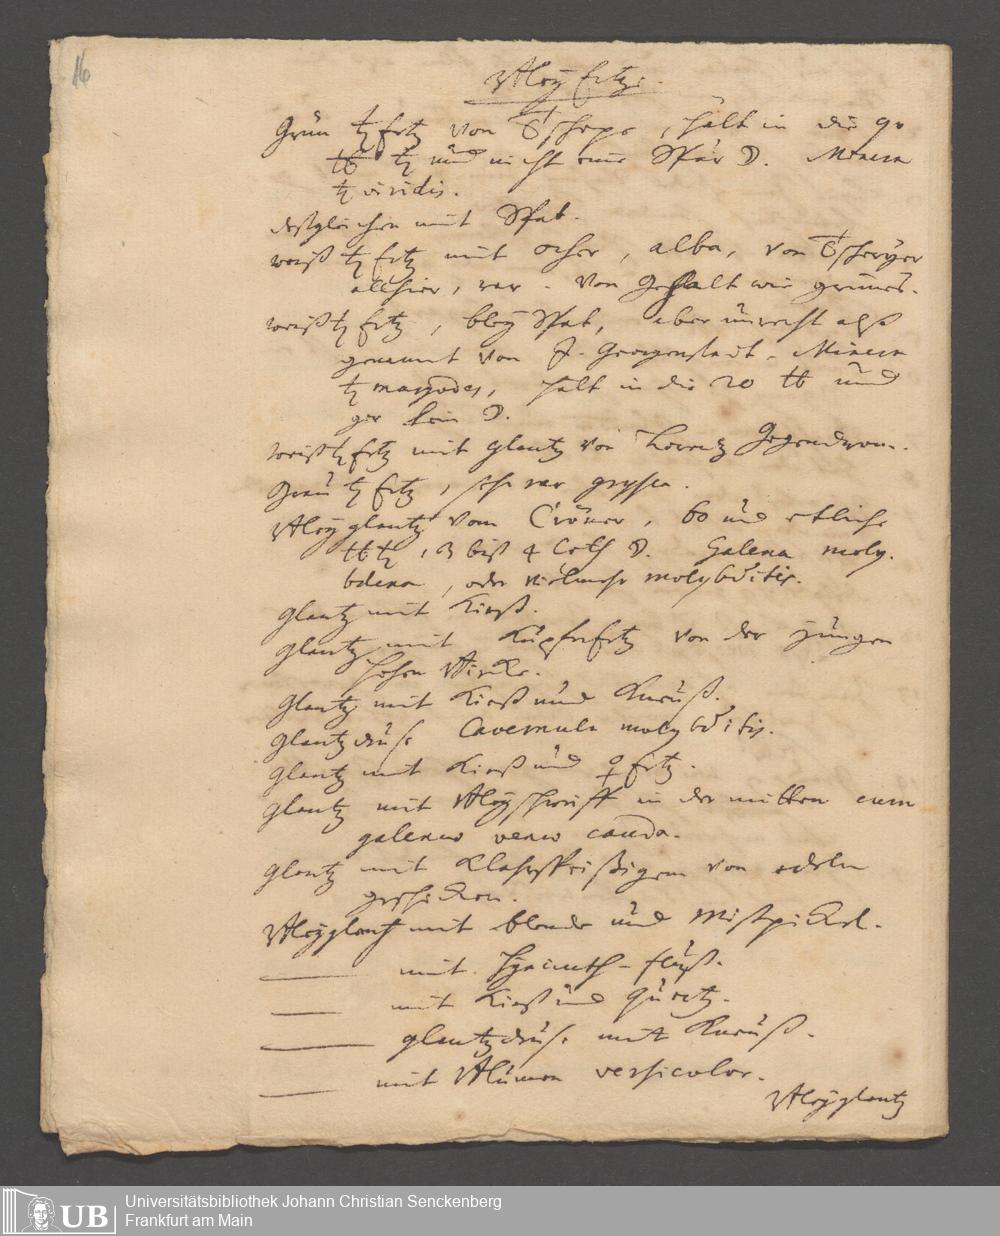 16
Bley Ertze.
Grün ♄ Ertz von Tschopo, hält in die 90
℔ ♄ und nicht eine Spur ☽. Minera
♄ viridis.
deßgleichen mit Spat.
weiß ♄ Ertz mit ocher, alba, von
allhier, rar. von Gehalt wie grünes.
weiß ♄ Ertz, bley Spat, aber unrecht also
genannt von J. Georgenstadt. Minera
♄ hält in die 70 ℔ und
gar kein ☽.
weiß ♄ Ertz mit glantz von Lorentz Gegendrom.
Grau ♄ Ertz, sehr rar
Bley glantz vom Cröner, 60 und etliche
℔ ♄, 3 biß 4 Loth ☽. Galena moly-
bdena, oder vielmehr molybditis.
glantz mit Kieß.
glantz mit Kupfer Ertz von der jungen
hohen Bircke.
glantz mit Kieß und Knauß.
glantz druse Cavernula molybditis.
glantz mit Kieß und ♀ Ertz.
glantz mit Bleyschweiff in der mitten cum
galena vena
glantz mit von edeln
geschicken.
Bleyglantz mit blende und Mißpickel.
——— mit Hyacinth-fluß.
——— mit Kieß und Quertz.
——— glantz druse mit Knauß.
——— mit Blumen versicolor.
Bleyglantz
UB
Universitätsbibliothek Johann Christian Senckenberg
Frankfurt am Main